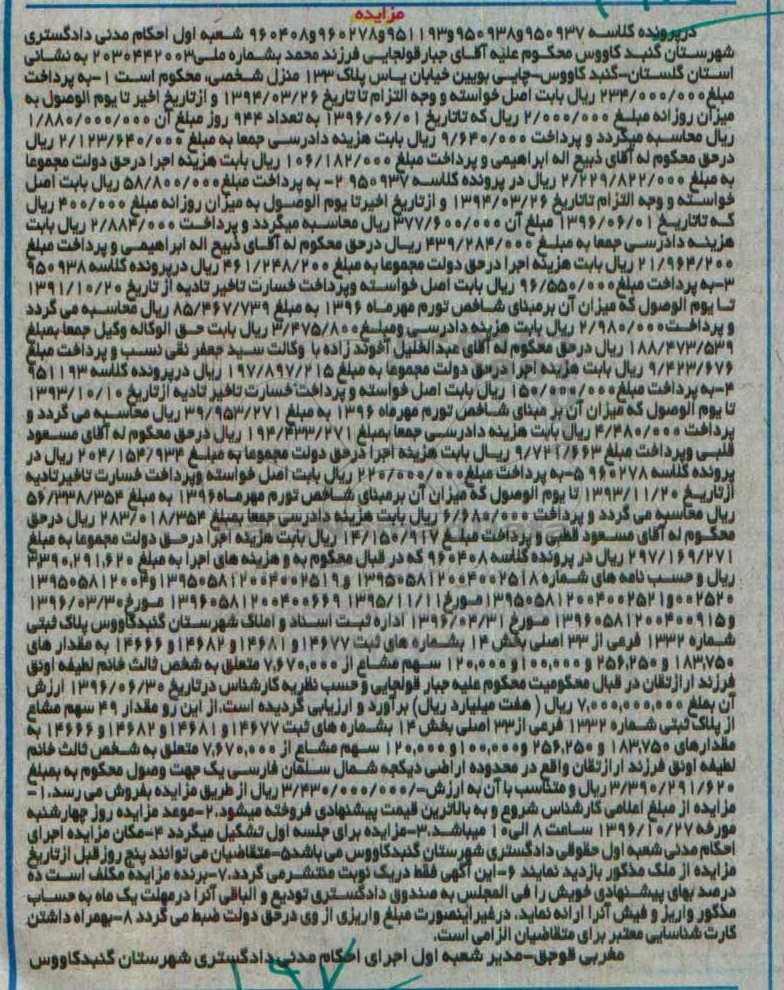 مزایده
درپرونده کلاسه ۹۵۰۹۳۷و۹۵۰۹۳۸و۹۵۱۱۹۳و۹۶۰۲۷۸و۹۶۰۴۰۸ شعبه اول احکام مدنی دادگستری
شهرستان گنبد کاووس محکوم علیه آقای جبار قولجایی فرزند محمد بشماره ملی۲۰۳۰۴۴۲۰۰۳ به نشانی
استان گلستان-گنبد کاووس-چایی بویین خیابان یاس پلاک ۱۳۳ منزل شخصی، محکوم است ۱-به پرداخت
مبلغ۲۳۴/۰۰۰/۰۰۰ ریال بابت اصل خواسته و وجه التزام تا تاریخ ۱۳۹۴/۰۳/۲۶ و ازتاریخ اخیر تا یوم الوصول به
میزان روزانه مبلغ ۲/۰۰۰/۰۰۰ ریال که تاتاریخ ۱۳۹۶/۰۶/۰۱ به تعداد ۹۴۴ روز مبلغ آن ۱/۸۸۰/۰۰۰/۰۰۰
ریال محاسبه میگردد و پرداخت ۹/۶۴۰/۰۰۰ ریال بابت هزینه دادرسی جمعا به مبلغ ۲/۱۲۳/۶۴۰/۰۰۰ ریال
درحق محکوم له آقای ذبیح اله ابراهیمی و پرداخت مبلغ ۱۰۶/۱۸۲/۰۰۰ ریال بابت هزینه اجرا درحق دولت مجموعا
به مبلغ ۲/۲۲۹/۸۲۲/۰۰۰ ریال در پرونده کلاسه ۹۵۰۹۳۷ ۲- به پرداخت مبلغ ۵۸/۸۰۰/۰۰۰ ریال بابت اصل
خواسته و وجه التزام تاتاریخ ۱۳۹۴/۰۳/۲۶ و ازتاریخ اخیرتا یوم الوصول به میزان روزانه مبلغ ۴۰۰/۰۰۰ ریال
که تاتاریخ ۱۳۹۶/۰۶/۰۱ مبلغ آن ۳۷۷/۶۰۰/۰۰۰ ریال محاسبه میگردد و پرداخت ۲/۸۸۴/۰۰۰ ریال بابت
هزینه دادرسی جمعا به مبلغ ۴۳۹/۲۸۴/۰۰۰ ریال درحق محکوم له آقای ذبیح اله ابراهیمی و پرداخت مبلغ
۲۱/۹۶۴/۲۰۰ ریال بابت هزینه اجرا درحق دولت مجموعا به مبلغ ۴۶۱/۲۴۸/۲۰۰ ریال درپرونده کلاسه ۹۵۰۹۳۸
۳-به پرداخت مبلغ۹۶/۵۵۰/۰۰۰ ریال بابت اصل خواسته وپرداخت خسارت تاخیر تادیه از تاریخ ۱۳۹۱/۱۰/۲۰
تا یوم الوصول که میزان آن برمبنای شاخص تورم مهرماه ۱۳۹۶ به مبلغ ۸۵/۴۶۷/۷۳۹ ریال محاسبه می گردد
و پرداخت۲/۹۸۰/۰۰۰ ریال بابت هزینه دادرسی ومبلغ۳/۴۷۵/۸۰۰ ریال بابت حق الوکاله وکیل جمعا بمبلغ
۱۸۸/۴۷۳/۵۳۹ ریال درحق محکوم له آقای عبدالخلیل آخوند زاده با وکالت سید جعفر نقی نسب و پرداخت مبلغ
۹/۴۲۳/۶۷۶ ریال بابت هزینه اجرا درحق دولت مجموعا به مبلغ ۱۹۷/۸۹۷/۲۱۵ ریال درپرونده کلاسه ۹۵۱۱۹۳
۴-به پرداخت مبلغ ۱۵۰/۰۰۰/۰۰۰ ریال بابت اصل خواسته و پرداخت خسارت تاخیر تادیه ازتاریخ ۱۳۹۳/۱۰/۱۰
تا یوم الوصول که میزان آن بر مبنای شاخص تورم مهرماه ۱۳۹۶ به مبلغ ۳۹/۹۵۳/۲۷۱ ریال محاسبه می گردد و
پرداخت ۴/۴۸۰/۰۰۰ ریال بابت هزینه دادرسی جمعا بمبلغ ۱۹۴/۴۳۳/۲۷۱ ریال درحق محکوم له آقای مسعود
قلبی وپرداخت مبلغ ۹/۷۲۱/۶۶۳ ریال بابت هزینه اجرا درحق دولت مجموعا به مبلغ ۲۰۴/۱۵۴/۹۳۴ ریال در
پرونده کلاسه ۹۶۰۲۷۸ ۵-به پرداخت مبلغ۲۲۰/۰۰۰/۰۰۰ ریال بابت اصل خواسته وپرداخت خسارت تاخیرتادیه
ازتاریخ ۱۳۹۳/۱۱/۲۰ تا یوم الوصول که میزان آن برمبنای شاخص تورم مهرماه۱۳۹۶ به مبلغ ۵۶/۳۳۸/۳۵۴
ریال محاسبه می گردد و پرداخت ۶/۶۸۰/۰۰۰ ریال بابت هزینه دادرسی جمعا بمبلغ ۲۸۳/۰۱۸/۳۵۴ ریال درحق
محکوم له آقای مسعود قطبی و پرداخت مبلغ ۱۴/۱۵۰/۹۱۷ ریال بابت هزینه اجرا درحق دولت مجموعا به مبلغ
۲۹۷/۱۶۹/۲۷۱ ریال در پرونده کلاسه ۹۶۰۴۰۸ که در قبال محکوم به و هزینه های اجرا به مبلغ ۳,۳۹۰,۲۹۱,۶۲۰
ریال و حسب نامه های شماره ۱۳۹۵۰۵۸۱۲۰۰۴۰۰۲۵۱۸ و ۱۳۹۵۰۵۸۱۲۰۰۴۰۰۲۵۱۹ و۱۳۹۵۰۵۸۱۲۰۰۴
۰۰۲۵۲۰ و۱۳۹۵۰۵۸۱۲۰۰۴۰۰۲۵۲۱مورخ۱۳۹۵/۱۱/۱۱ ۱۳۹۶۰۵۸۱۲۰۰۴۰۰۶۶۹ مورخ۱۳۹۶/۰۳/۳۰
و۱۳۹۶۰۵۸۱۲۰۰۴۰۰۹۱۵ مورخ ۱۳۹۶/۰۴/۳۱ اداره ثبت اسناد و املاک شهرستان گنبدکاووس پلاک ثبتی
شماره ۱۳۳۲ فرعی از ۳۳ اصلی بخش ۱۴ بشماره های ثبت ۱۴۶۷۷و ۱۴۶۸۱و ۱۴۶۸۲و ۱۴۶۶۶ به مقدار های
۱۸۳,۷۵۰ و ۲۵۶,۲۵۰ و ۱۰۰,۰۰۰و ۱۲۰,۰۰۰ سهم مشاع از ۷,۶۷۰,۰۰۰ متعلق به شخص ثالث خانم لطیفه اونق
فرزند ارازتقان در قبال محکومیت محکوم علیه جبار قولجایی و حسب نظریه کارشناس درتاریخ ۱۳۹۶/۰۶/۳۰ ارزش
آن بمبلغ ۷,۰۰۰,۰۰۰,۰۰۰ ریال ( هفت میلیارد ریال) برآورد و ارزیابی گردیده است.از این رو مقدار ۴۹ سهم مشاع
از پلاک ثبتی شماره ۱۳۳۲ فرعی از۳۳ اصلی بخش ۱۴ بشماره های ثبت ۱۴۶۷۷و ۱۴۶۸۱و ۱۴۶۸۲و ۱۴۶۶۶ به
مقدارهای ۱۸۳,۷۵۰ و ۲۵۶,۲۵۰ و۱۰۰,۰۰۰ و ۱۲۰,۰۰۰ سهم مشاع از ۷,۶۷۰,۰۰۰ متعلق به شخص ثالث خانم
لطیفه اونق فرزند ارازتقان واقع در محدوده اراضی دیکجه شمال سلمان فارسی یک جهت وصول محکوم به بمبلغ
۳/۳۹۰/۲۹۱/۶۲۰ ریال و متناسب با آن به ارزش-/۳/۴۳۰/۰۰۰/۰۰۰ ریال از طریق مزایده بفروش می رسد.۱-
مزایده از مبلغ اعلامی کارشناس شروع و به بالاترین قیمت پیشنهادی فروخته میشود.۲-موعد مزایده روز چهارشنبه
مورخه ۱۳۹۶/۱۰/۲۷ ساعت ۸ الی۱۰ میباشد.۳-مزایده برای جلسه اول تشکیل میگردد ۴-مکان مزایده اجرای
احکام مدنی شعبه اول حقوقی دادگستری شهرستان گنبدکاووس می باشد۵-متقاضیان می توانند پنج روز قبل ازتاریخ
مزایده از ملک مذکور بازدید نمایند ۶-این آگهی فقط دریک نوبت منتشرمی گردد.۷-برنده مزایده مکلف است ده
درصد بهای پیشنهادی خویش را فی المجلس به صندوق دادگستری تودیع و الباقی آنرا درمهلت یک ماه به حساب
مذکور واریز و فیش آنرا ارائه نماید. درغیراینصورت مبلغ واریزی از وی درحق دولت ضبط می گردد ۸-بهمراه داشتن
کارت شناسایی معتبر برای متقاضیان الزامی است.
مغربی قوجق-مدیر شعبه اول اجرای احکام مدنی دادگستری شهرستان گنبدکاووس